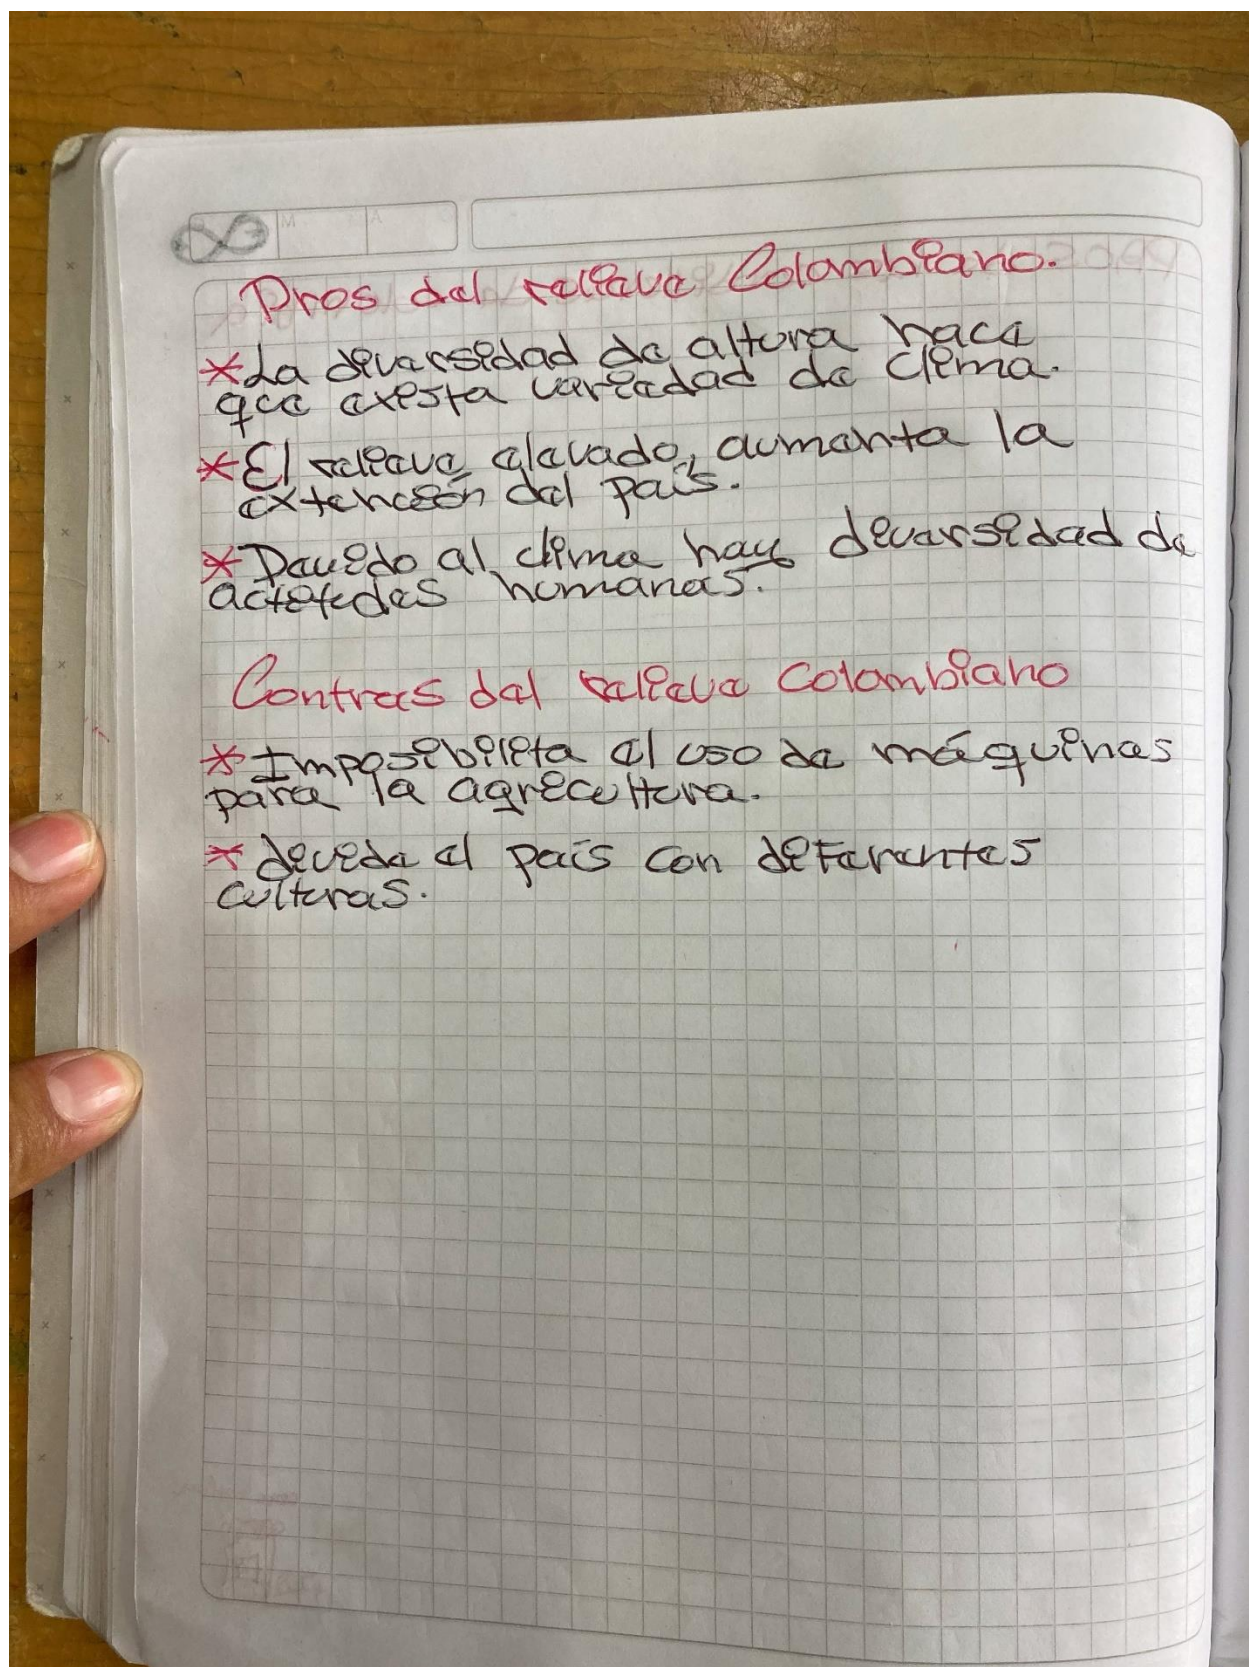 Pros del relieve Colombiano.
*La diversidad de altura hace
que exista variedad de clima.
*El relieve elevado, aumenta la
extención del país.
*Devido al clima hay diversidad de
humanas.
Contras del relieve Colombiano
*Imposibilita el uso de máquinas
para la agricultura.
*divide el país con diferentes
culturas.